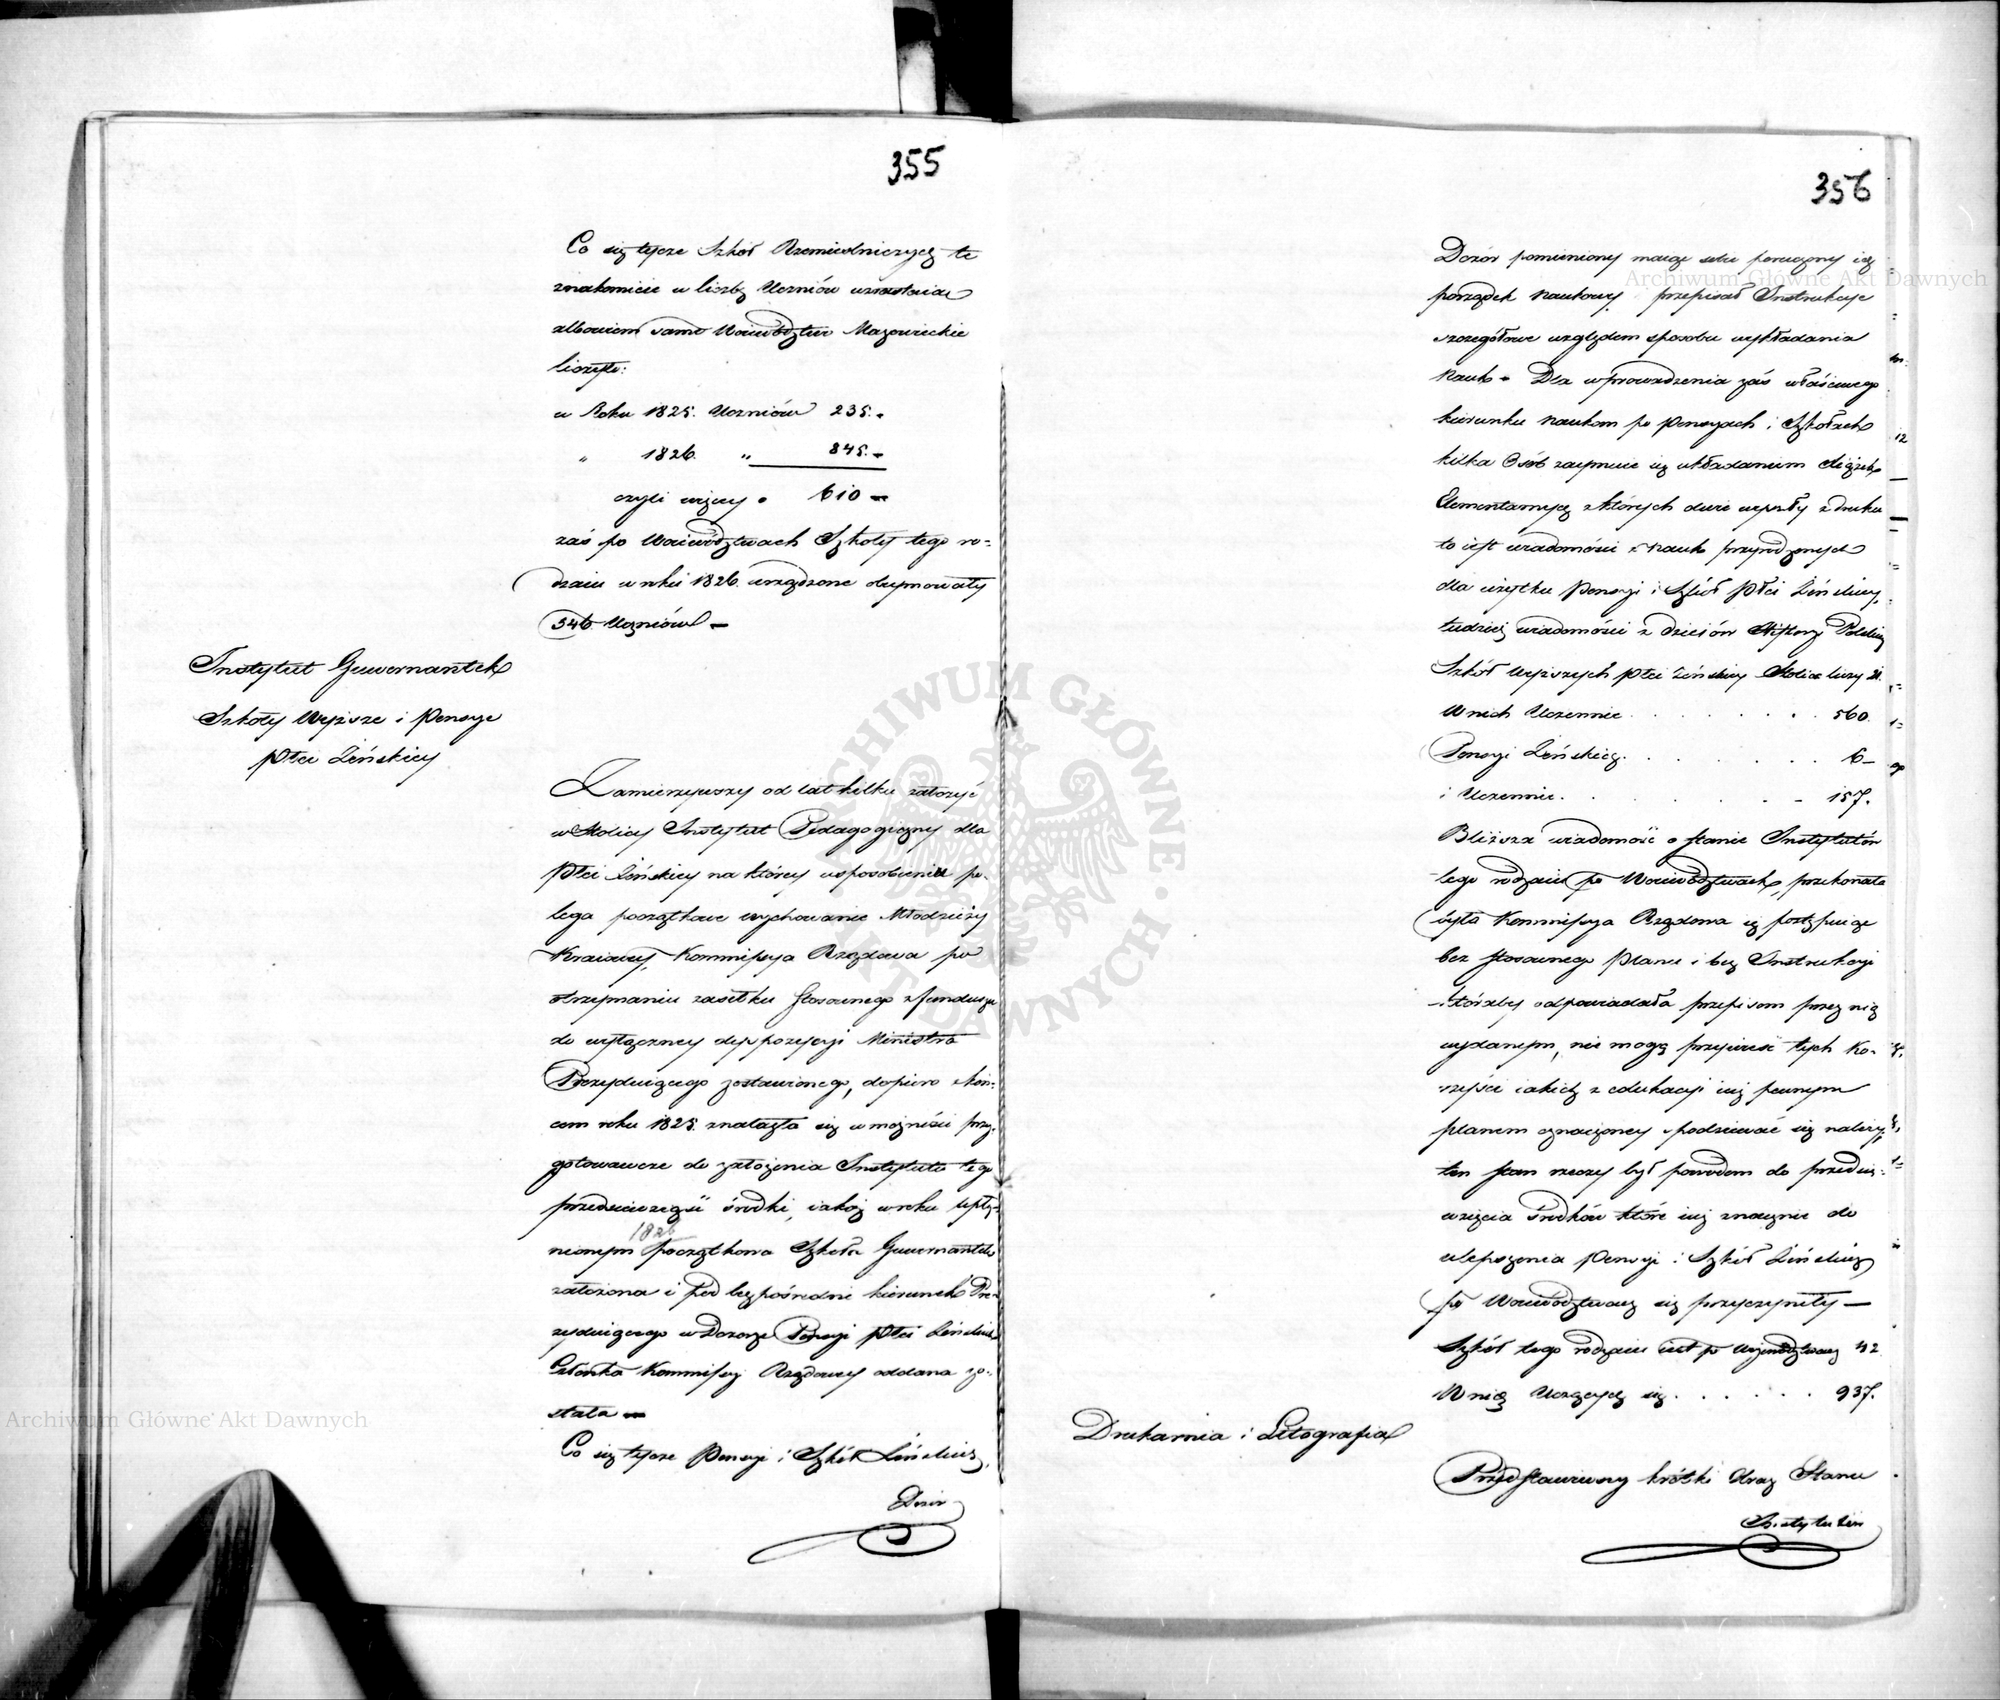 355
Co się tycze Szkół Rzemieślniczych te
znakomicie w liczbę Uczniów wzrastaią
albowiem samo Woiewództwo Mazowieckie
liczyło:
w Roku 1825. Uczniów 235.-
" 1826. " 845.-
czyli więcey 610-
zaś po Woiewództwach Szkoły tego ro=
dzaiu w roku 1826. urządzone obeymowały
546 Uczniów-
Instytut Guwernantek
Szkoły Wyższe i Pensye
Płci Żeńskiey
Zamierzywszy od lat kilku założyć
w Stolicy Instytut Pedagogiczny dla
Płci Żeńskiey na którey usposobieniu po-
lega początkowe wychowanie Młodzieży
Kraiowey, Kommissya Rządowa po
otrzymaniu zasiłku stosownego z funduszu
do wyłączney dyspozycyi Ministra
Prezyduiącego zostawionego, dopiero z koń-
cem roku 1825. znalazła się w możności przy-
gotowawcze do założenia Instytutu tego
przedsięwziąść środki, iakoż w roku upły-
1826
nionym początkowa Szkoła Guwernantek
założona i pod bezpośredni kierunek Pre-
zyduiącego w Dozorze Pensyi Płci Żeńskiey
Członka Kommissyi Rządowey oddana zo-
stała -
Co się tycze Pensyi i Szkół Żeńskich,
Dozór
356
Dozór pomieniony maiąc sobie poruczony ich
porządek naukowy, przepisał Instrukcye
szczegółowe względem sposobu wykładania
Nauk - Dla wprowadzenia zaś właściwego
kierunku naukom po Pensyach i Szkołach
kilka Osób zaymuie się układaniem Xiążek
Elementarnych z których dwie wyszły z druku
to iest wiadomości z nauk przyrodzonych
dla użytku Pensyi i Szkół Płci Żeńskiey,
tudzież wiadomości z dzieiów Historyi Polskiey
Szkół Wyższych Płci Żeńskiey Stolica liczy 21.
W nich Uczennic . . . . . . . 560.
Pensyi Żeńskich . . . . . . . 6-
i Uczennic . . . . . . . - 157.
Bliższa wiadomość o stanie Instytutów
tego rodzaiu po Woiewództwach, przekonała
była Kommissya Rządowa iż postępuiąc
bez stosownego Planu i bez Instrukcyi
któraby odpowiadała przepisom przez nią
wydanym, nie mogą przynieść tych ko-
rzyści iakich z edukacyi iuż pewnym
planem oznaczoney spodziewać się należy,
ten stan rzeczy był powodem do przedsię-
wzięcia środków które iuż znacznie do
ulepszenia Pensyi i Szkół Żeńskich
po Woiewództwach się przyczyniły -
Szkół tego rodzaiu iest po Woiewództwach 42
W nich Uczących się . . . . . . 937.
Drukarnia i Litografia
Przedstawiwszy krótki obraz Stanu
Instytutów
Archiwum Główne Akt Dawnych
Archiwum Główne Akt Dawnych
ARCHIWUM GŁÓWNE AKT DAWNYCH